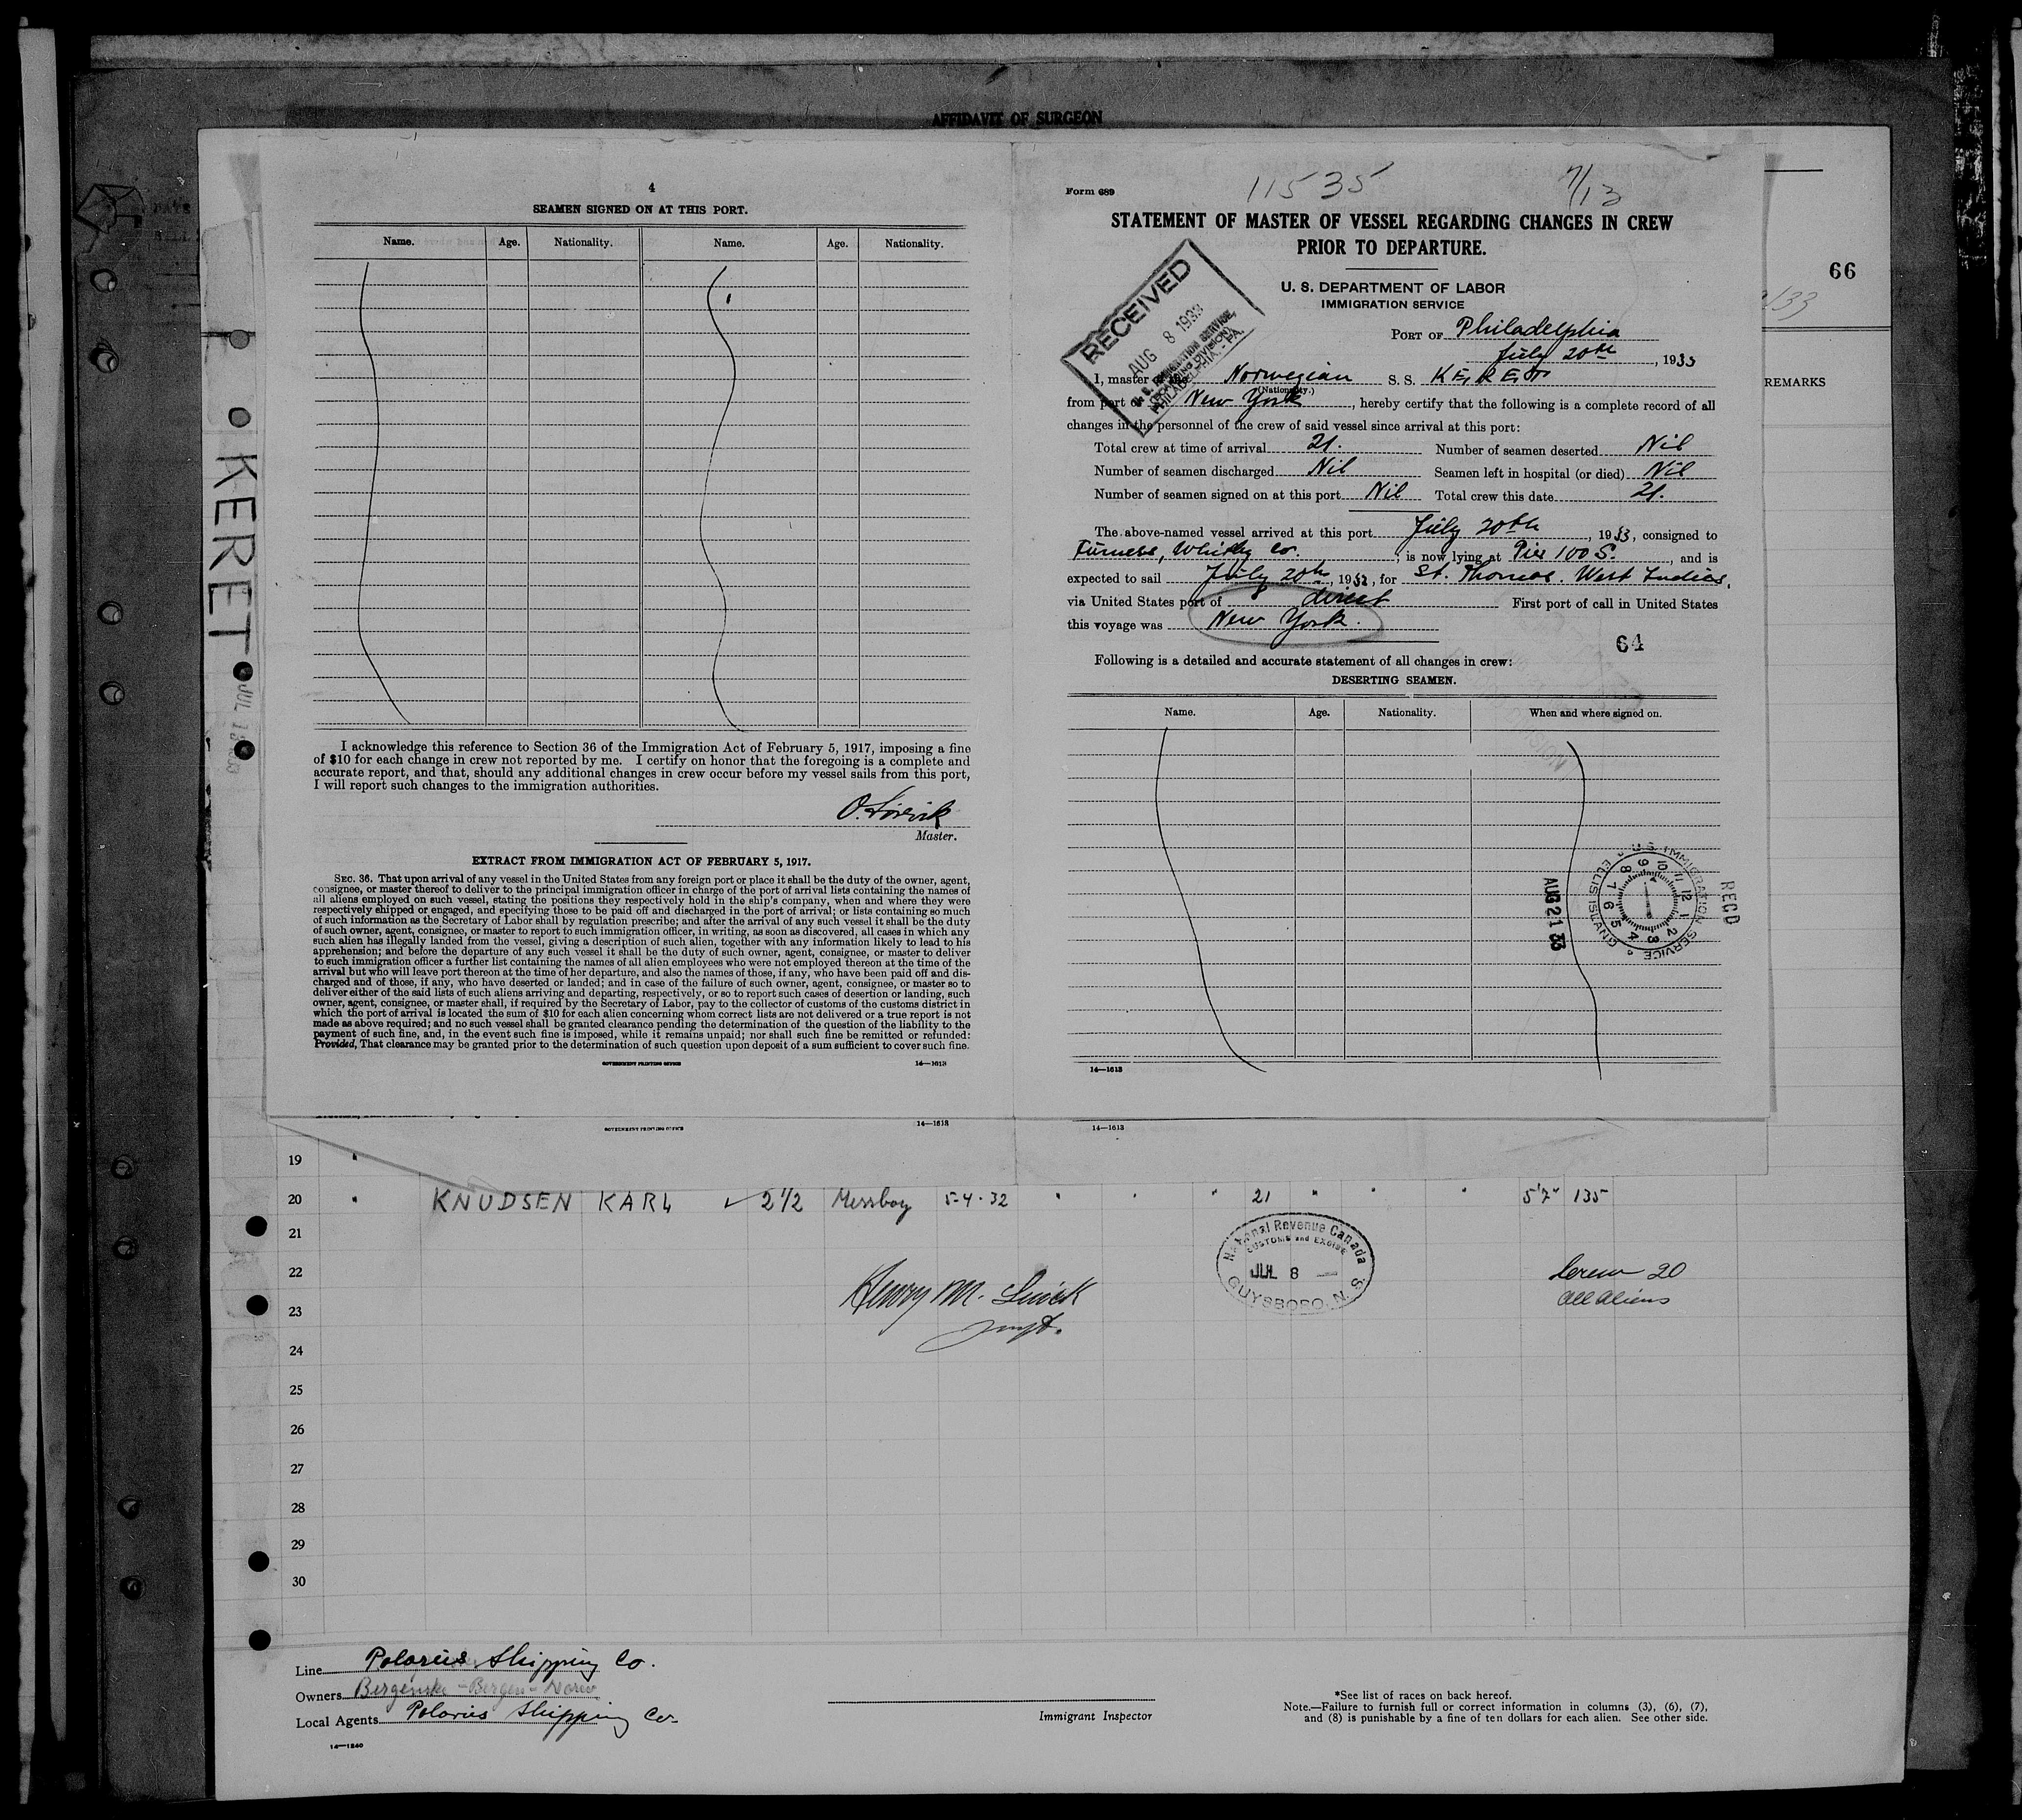 AFFIDAVIT OF SURGEON
66
REMARKS
KERET
4
SEAMEN SIGNED ON AT THIS PORT.
Name. Age. Nationality. Name. Age. Nationality.
I acknowledge this reference to Section 36 of the Immigration Act of February 5, 1917, imposing a fine
of $10 for each change in crew not reported by me. I certify on honor that the foregoing is a complete and
accurate report, and that, should any additional changes in crew occur before my vessel sails from this port,
I will report such changes to the immigration authorities.
Master.
EXTRACT FROM IMMIGRATION ACT OF FEBRUARY 5, 1917.
SEC. 36. That upon arrival of any vessel in the United States from any foreign port or place it shall be the duty of the owner, agent,
consignee, or master thereof to deliver to the principal immigration officer in charge of the port of arrival lists containing the names of
all aliens employed on such vessel, stating the positions they respectively hold in the ship's company, when and where they were
respectively shipped or engaged, and specifying those to be paid off and discharged in the port of arrival; or lists containing so much
of such information as the Secretary of Labor shall by regulation prescribe; and after the arrival of any such vessel it shall be the duty
of such owner, agent, consignee, or master to report to such immigration officer, in writing, as soon as discovered, all cases in which any
such alien has illegally landed from the vessel, giving a description of such alien, together with any information likely to lead to his
apprehension; and before the departure of any such vessel it shall be the duty of such owner, agent, consignee, or master to deliver
to such immigration officer a further list containing the names of all alien employees who were not employed thereon at the time of the
arrival but who will leave port thereon at the time of her departure, and also the names of those, if any, who have been paid off and dis-
charged and of those, if any, who have deserted or landed; and in case of the failure of such owner, agent, consignee, or master so to
deliver either of the said lists of such aliens arriving and departing, respectively, or so to report such cases of desertion or landing, such
owner, agent, consignee, or master shall, if required by the Secretary of Labor, pay to the collector of customs of the customs district in
which the port of arrival is located the sum of $10 for each alien concerning whom correct lists are not delivered or a true report is not
made as above required; and no such vessel shall be granted clearance pending the determination of the question of the liability to the
payment of such fine, and, in the event such fine is imposed, while it remains unpaid; nor shall such fine be remitted or refunded:
Provided, That clearance may be granted prior to the determination of such question upon deposit of a sum sufficient to cover such fine.
GOVERNMENT PRINTING OFFICE 14—1613
Form 689 11535 7/13
STATEMENT OF MASTER OF VESSEL REGARDING CHANGES IN CREW
PRIOR TO DEPARTURE.
U. S. DEPARTMENT OF LABOR
IMMIGRATION SERVICE
RECEIVED
AUG 8 1933
U. S. IMMIGRATION SERVICE,
PHILADELPHIA, PA.
PORT OF Philadelphia
July 20th, 1933
I, master Norwegian S. S. KERET
(Nationality.)
from port of New York, hereby certify that the following is a complete record of all
changes in the personnel of the crew of said vessel since arrival at this port:
Total crew at time of arrival 21. Number of seamen deserted Nil
Number of seamen discharged Nil Seamen left in hospital (or died) Nil
Number of seamen signed on at this port Nil Total crew this date 21.
The above-named vessel arrived at this port July 20th, 1933, consigned to
Furness, Withy Co., is now lying at Pier 100 S., and is
expected to sail July 20th, 1933, for St. Thomas. West Indies,
via United States port of direct First port of call in United States
this voyage was New York.
64
Following is a detailed and accurate statement of all changes in crew:
DESERTING SEAMEN.
Name. Age. Nationality. When and where signed on.
RECD
U. S. IMMIGRATION SERVICE
ELLIS ISLAND
AUG 21 33
14—1613
GOVERNMENT PRINTING OFFICE 14—1613 14—1613
19
20 KNUDSEN KARL 2 1/2 Messboy 5-4-32 " " " 21 " " " 5'7" 135
21
22
23
24
25
26
27
28
29
30
Henry M. 
National Revenue Canada
CUSTOMS and EXCISE
JUL 8
GUYSBORO, N. S.
Crew 20
all aliens
Line Polarius Shipping Co.
Owners Bergenske - Bergen -
Local Agents Polarius Shipping Co.
Immigrant Inspector
*See list of races on back hereof.
Note.—Failure to furnish full or correct information in columns (3), (6), (7),
and (8) is punishable by a fine of ten dollars for each alien. See other side.
14—1240